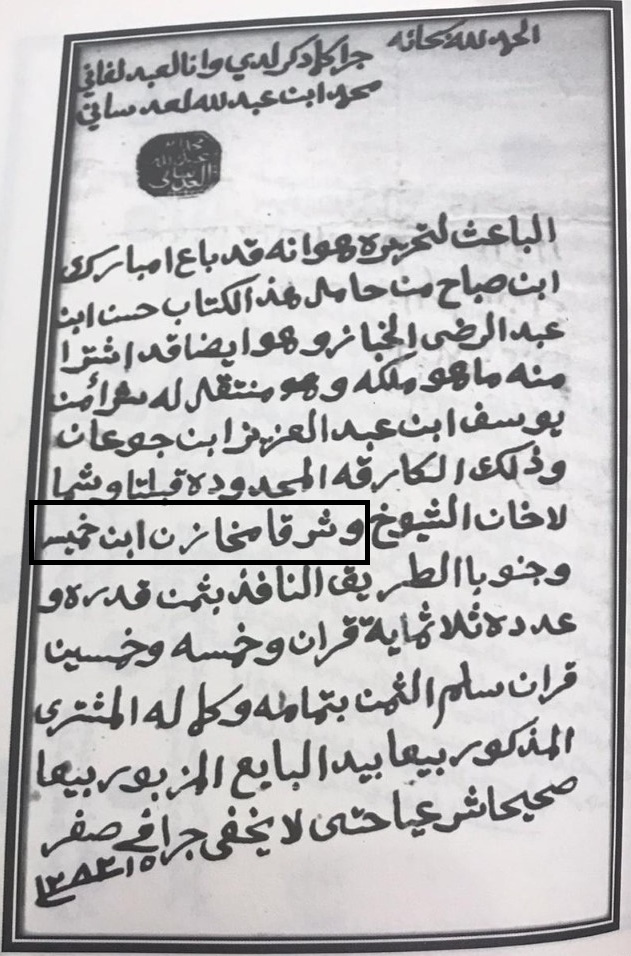 الحمد لله سبحانه
جرا كل ذكر لدي وانا العبد لفاني
محمد ابن عبد الله لعدساني
محمد ابن
عبد الله
العدساني
الباعث لتحريره هو انه قد باع امبارك
ابن صباح من حامل هذ الكتاب حسن ابن
عبد الرضى الخباز وهو ايضا قد اشترا
منه ما هو ملكه وهو منتقل له شرا من
يوسف ابن عبد العزيز ابن جوعان
وذلك الكارقه المحدوده قبلتا وشما
لا خان الشيوخ وشرقا مخازن ابن خميس
وجنوبا الطريق النافذ بثمن قدره و
عدده ثلاثماية قران وخمسه وخمسين
قران سلم الثمن بتمامه وكل له المشترى
المذكور بيعا بيد البايع المزبور بيعا
صحيحا شرعيا حتى لا يخفى جرا في صفر
١٥ ١٢٨٣